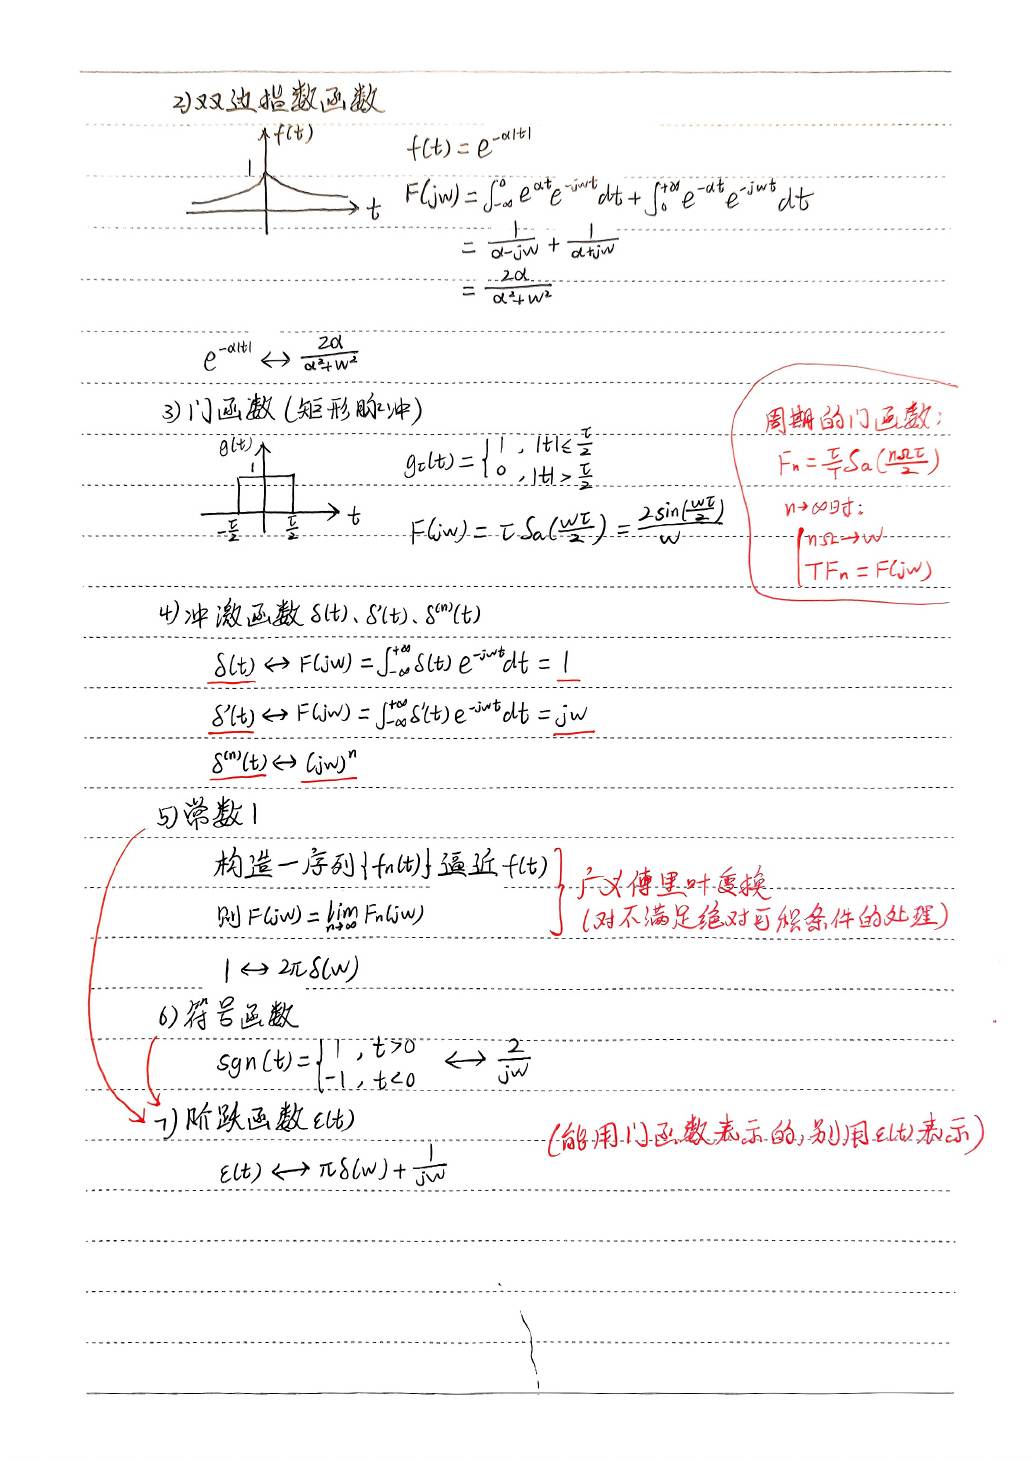 2) 双边指数函数
f(t)
1
t
f(t) = e^{-α|t|}
F(jw) = ∫_{-∞}^{0} e^{αt} e^{-jwt} dt + ∫_{0}^{+∞} e^{-αt} e^{-jwt} dt
= \frac{1}{α-jw} + \frac{1}{α+jw}
= \frac{2α}{α²+w²}
e^{-α|t|} ↔ \frac{2α}{α²+w²}
3) 门函数 (矩形脉冲)
g(t)
1
-\frac{τ}{2} \frac{τ}{2} t
g_τ(t) = { 1 , |t| ≤ \frac{τ}{2}
0 , |t| > \frac{τ}{2}
F(jw) = τ Sa(\frac{wτ}{2}) = \frac{2sin(\frac{wτ}{2})}{w}
周期的门函数:
Fn = \frac{τ}{T} Sa(\frac{nΩτ}{2})
n→∞时:
nΩ→w
TFn = F(jw)
4) 冲激函数 δ(t)、δ'(t)、δ^{(n)}(t)
δ(t) ↔ F(jw) = ∫_{-∞}^{+∞} δ(t) e^{-jwt} dt = 1
δ'(t) ↔ F(jw) = ∫_{-∞}^{+∞} δ'(t) e^{-jwt} dt = jw
δ^{(n)}(t) ↔ (jw)^n
5) 常数1
构造一序列{fn(t)}逼近f(t)
则 F(jw) = \lim_{n→∞} Fn(jw)
广义傅里叶变换
(对不满足绝对可积条件的处理)
1 ↔ 2πδ(w)
6) 符号函数
sgn(t) = { 1 , t>0 ↔ \frac{2}{jw}
-1 , t<0
7) 阶跃函数 ε(t)
(能用门函数表示的,别用ε(t)表示)
ε(t) ↔ πδ(w) + \frac{1}{jw}